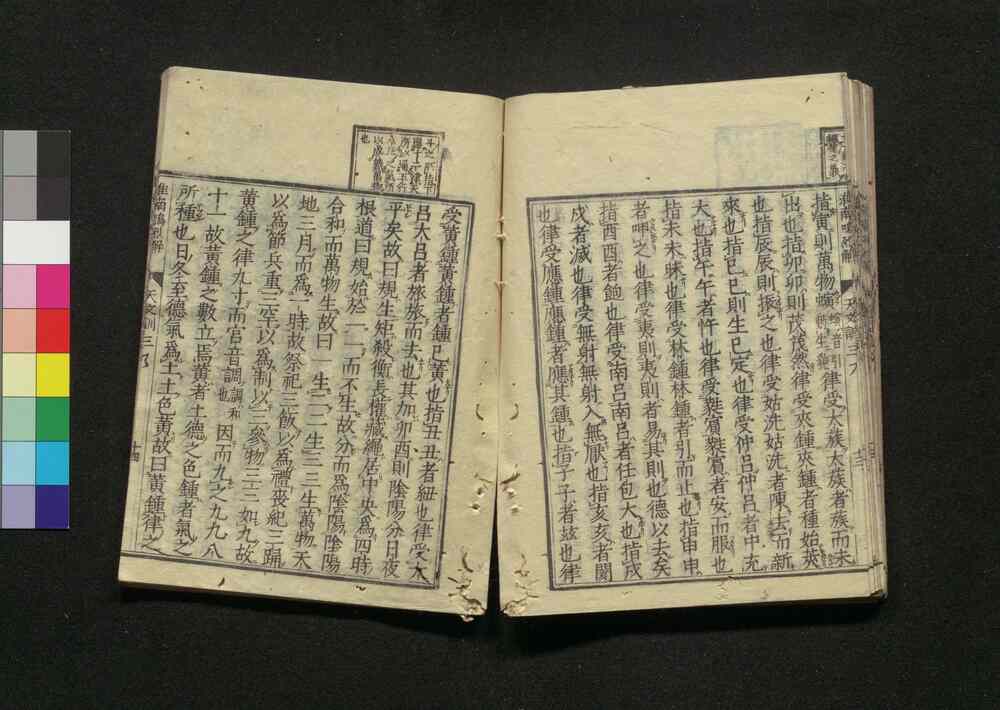 指寅則萬物螾
律受太蔟太蔟者蔟而未
出也指卯卯則茂茂然律受夾鍾夾鍾者種始莢
也指辰辰則振之也律受姑洗姑洗者陳去而新
來也指巳巳則生已定也律受仲呂仲呂者中充
大也指午午者忤也律受蕤賓蕤賓者安而服也
指未未昧也律受林鍾林鍾者引而止也指申申
者呻之也律受夷則夷則者易其則也德以去矣
指酉酉者飽也律受南呂南呂者任包大也指戌
戌者滅也律受無射無射入無厭也指亥亥者閡
也律受應鍾應鍾者應其鍾也指子子者茲也律
受黃鍾黃鍾者鍾已黃也指丑丑者紐也律受大
呂大呂者旅旅而去也其加卯酉則陰陽分日夜
平矣故曰規生矩殺衡長權藏繩居中央爲四時
根道曰規始於一一而不生故分而爲陰陽陰陽
合和而萬物生故曰一生二二生三三生萬物天
地三月而爲一時故祭祀三飯以爲禮喪紀三踊
以爲節兵重三罕以爲制以三參物三三如九故
黃鍾之律九寸而宮音調
調和也
因而九之九九八
十一故黃鍾之數立焉黃者土德之色鍾者氣之
所種也日冬至德氣爲土土色黃故曰黃鍾律之
天文訓